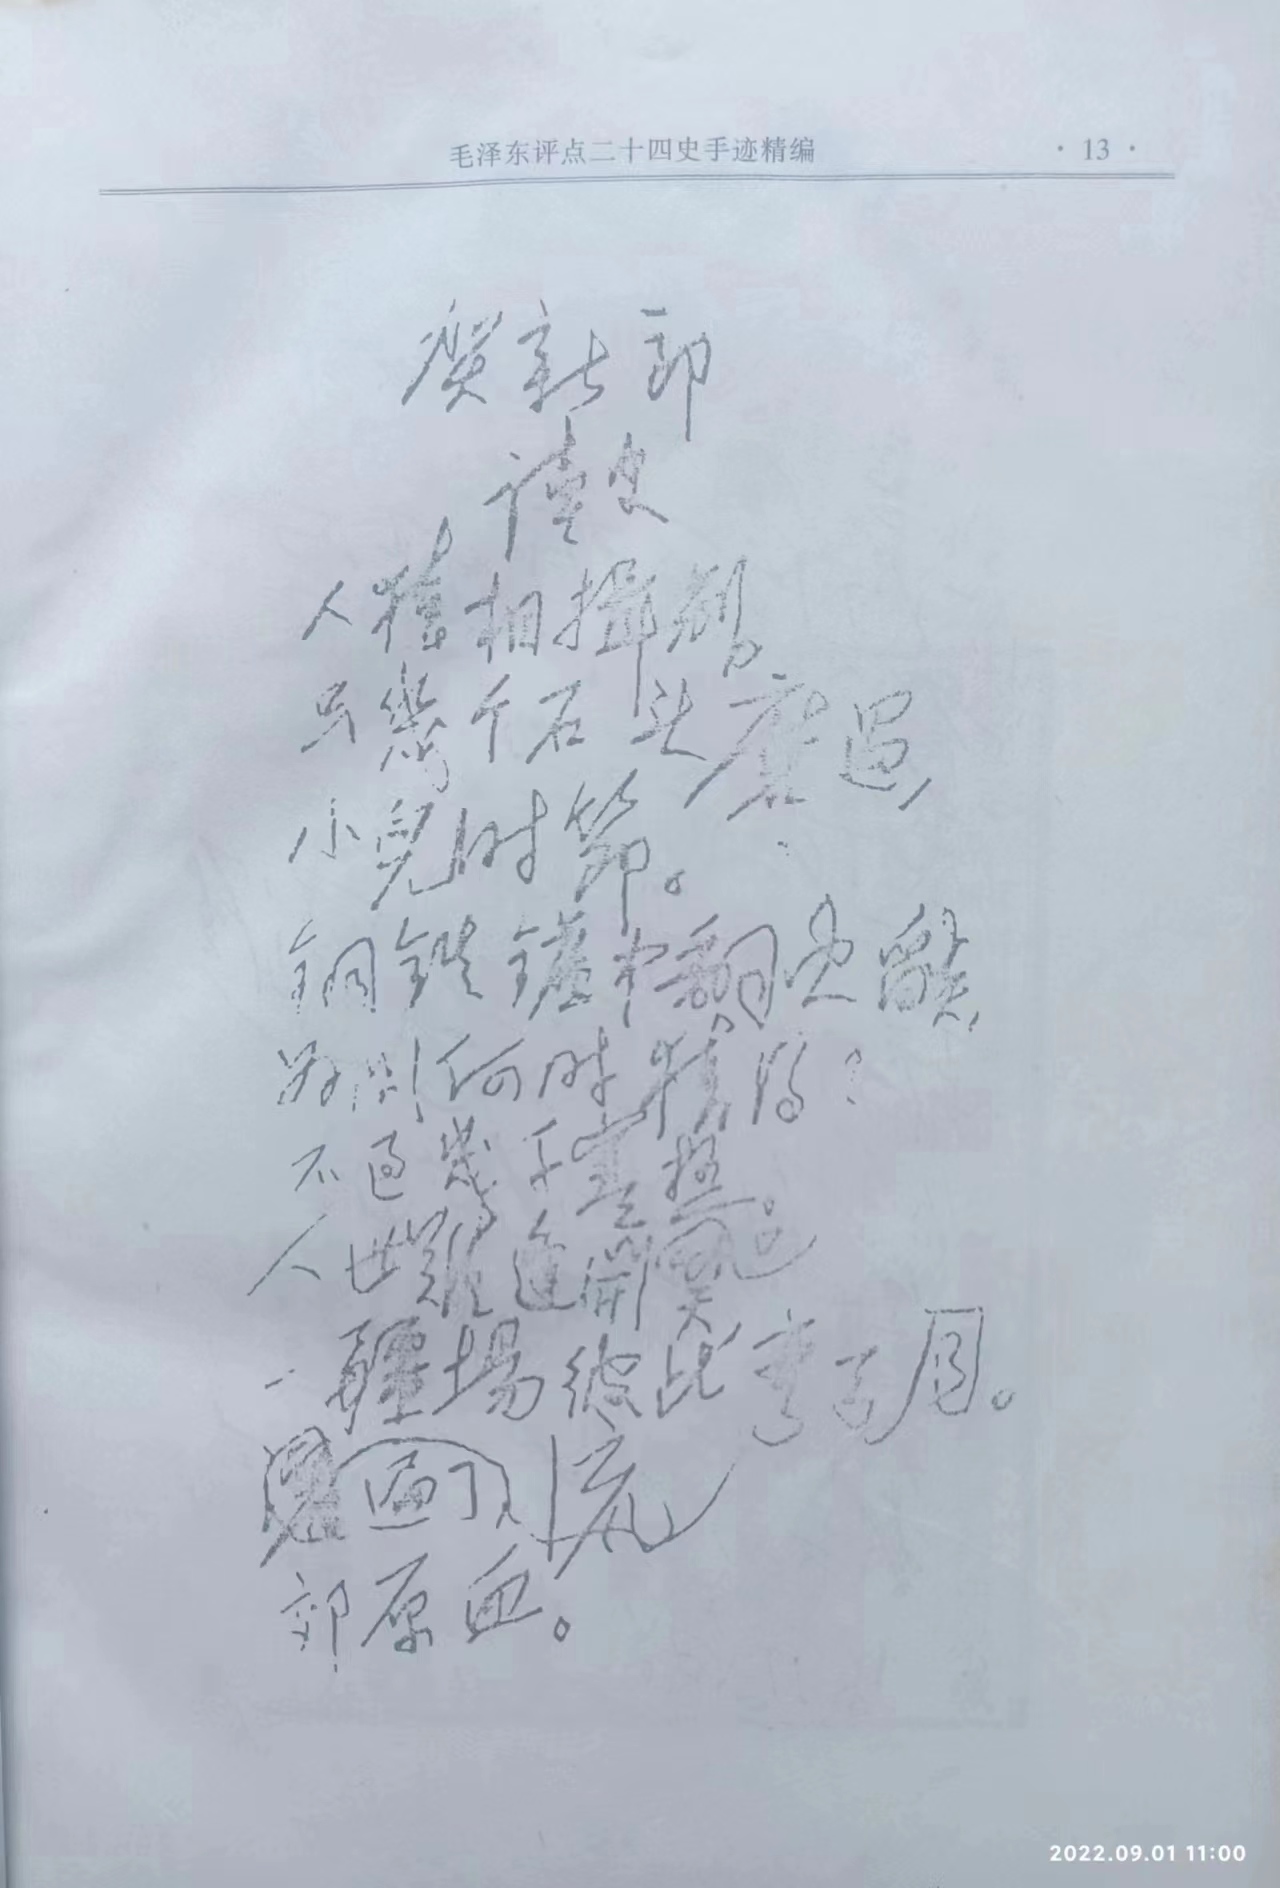 毛泽东评点二十四史手迹精编 ·13·
贺新郎
读史
人猿相揖别。
只幾个石头磨过，
小兒时節。
铜铁鑪中翻火焰
为问何时猜得？
不过幾千寒热。
人世難逢開口笑
疆場彼此弯弓月。
遍了 流
郊原血。
2022.09.01 11:00